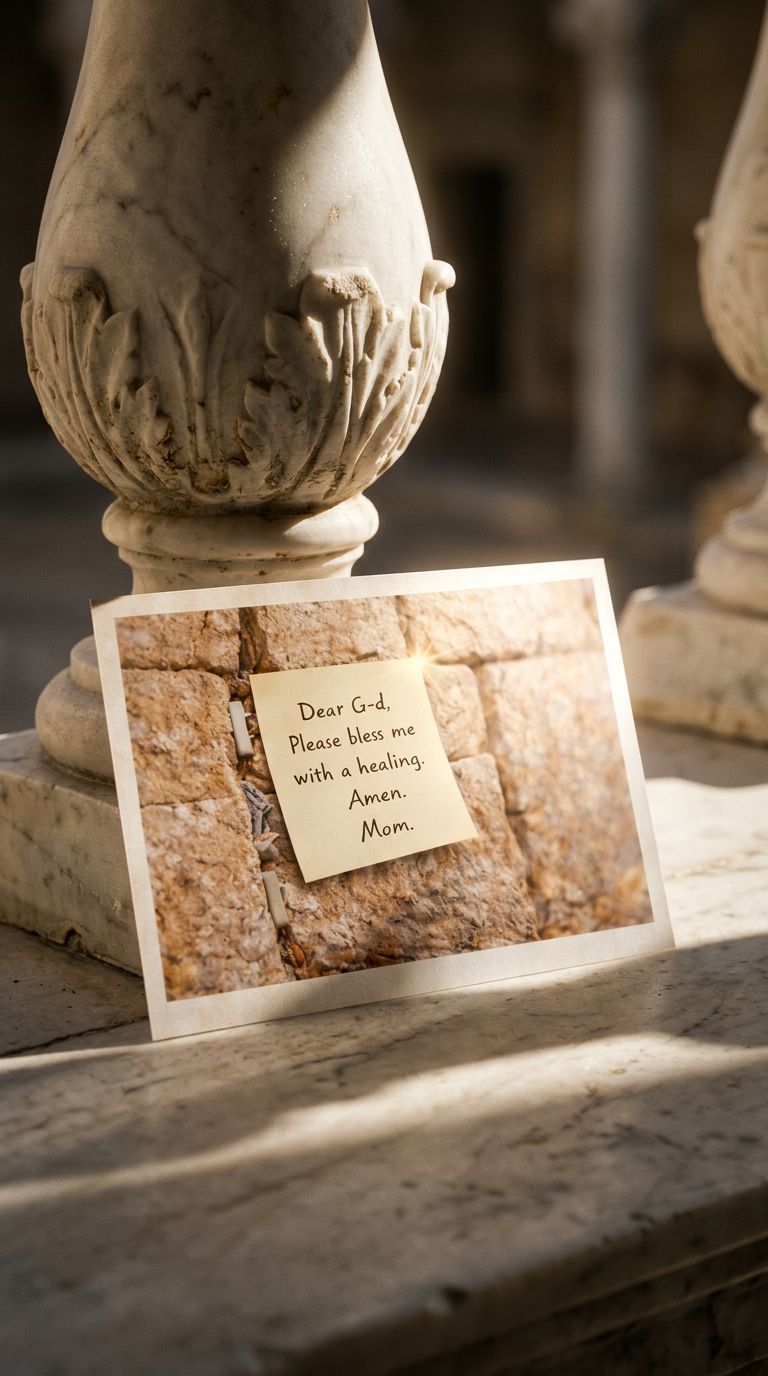 Dear G-d,
Please bless me
with a healing.
Amen.
Mom.